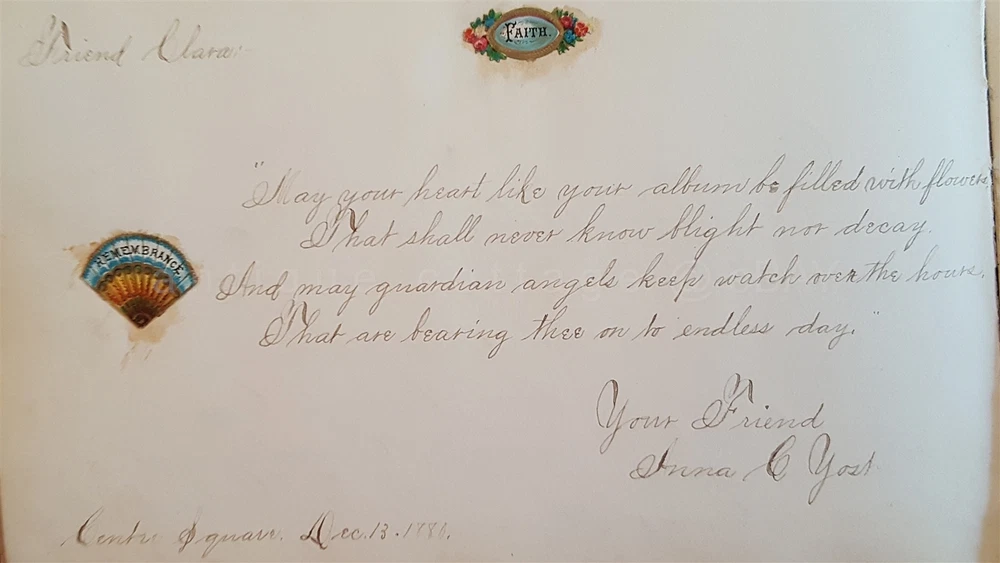 FAITH.
Friend Clara:-
"May your heart like your album be filled with flowers,
That shall never know blight nor decay.
REMEMBRANCE
And may guardian angels keep watch over the hours,
That are bearing thee on to endless day."
Your Friend
Anna C Yost
Centre Square, Dec. 13. 1880.